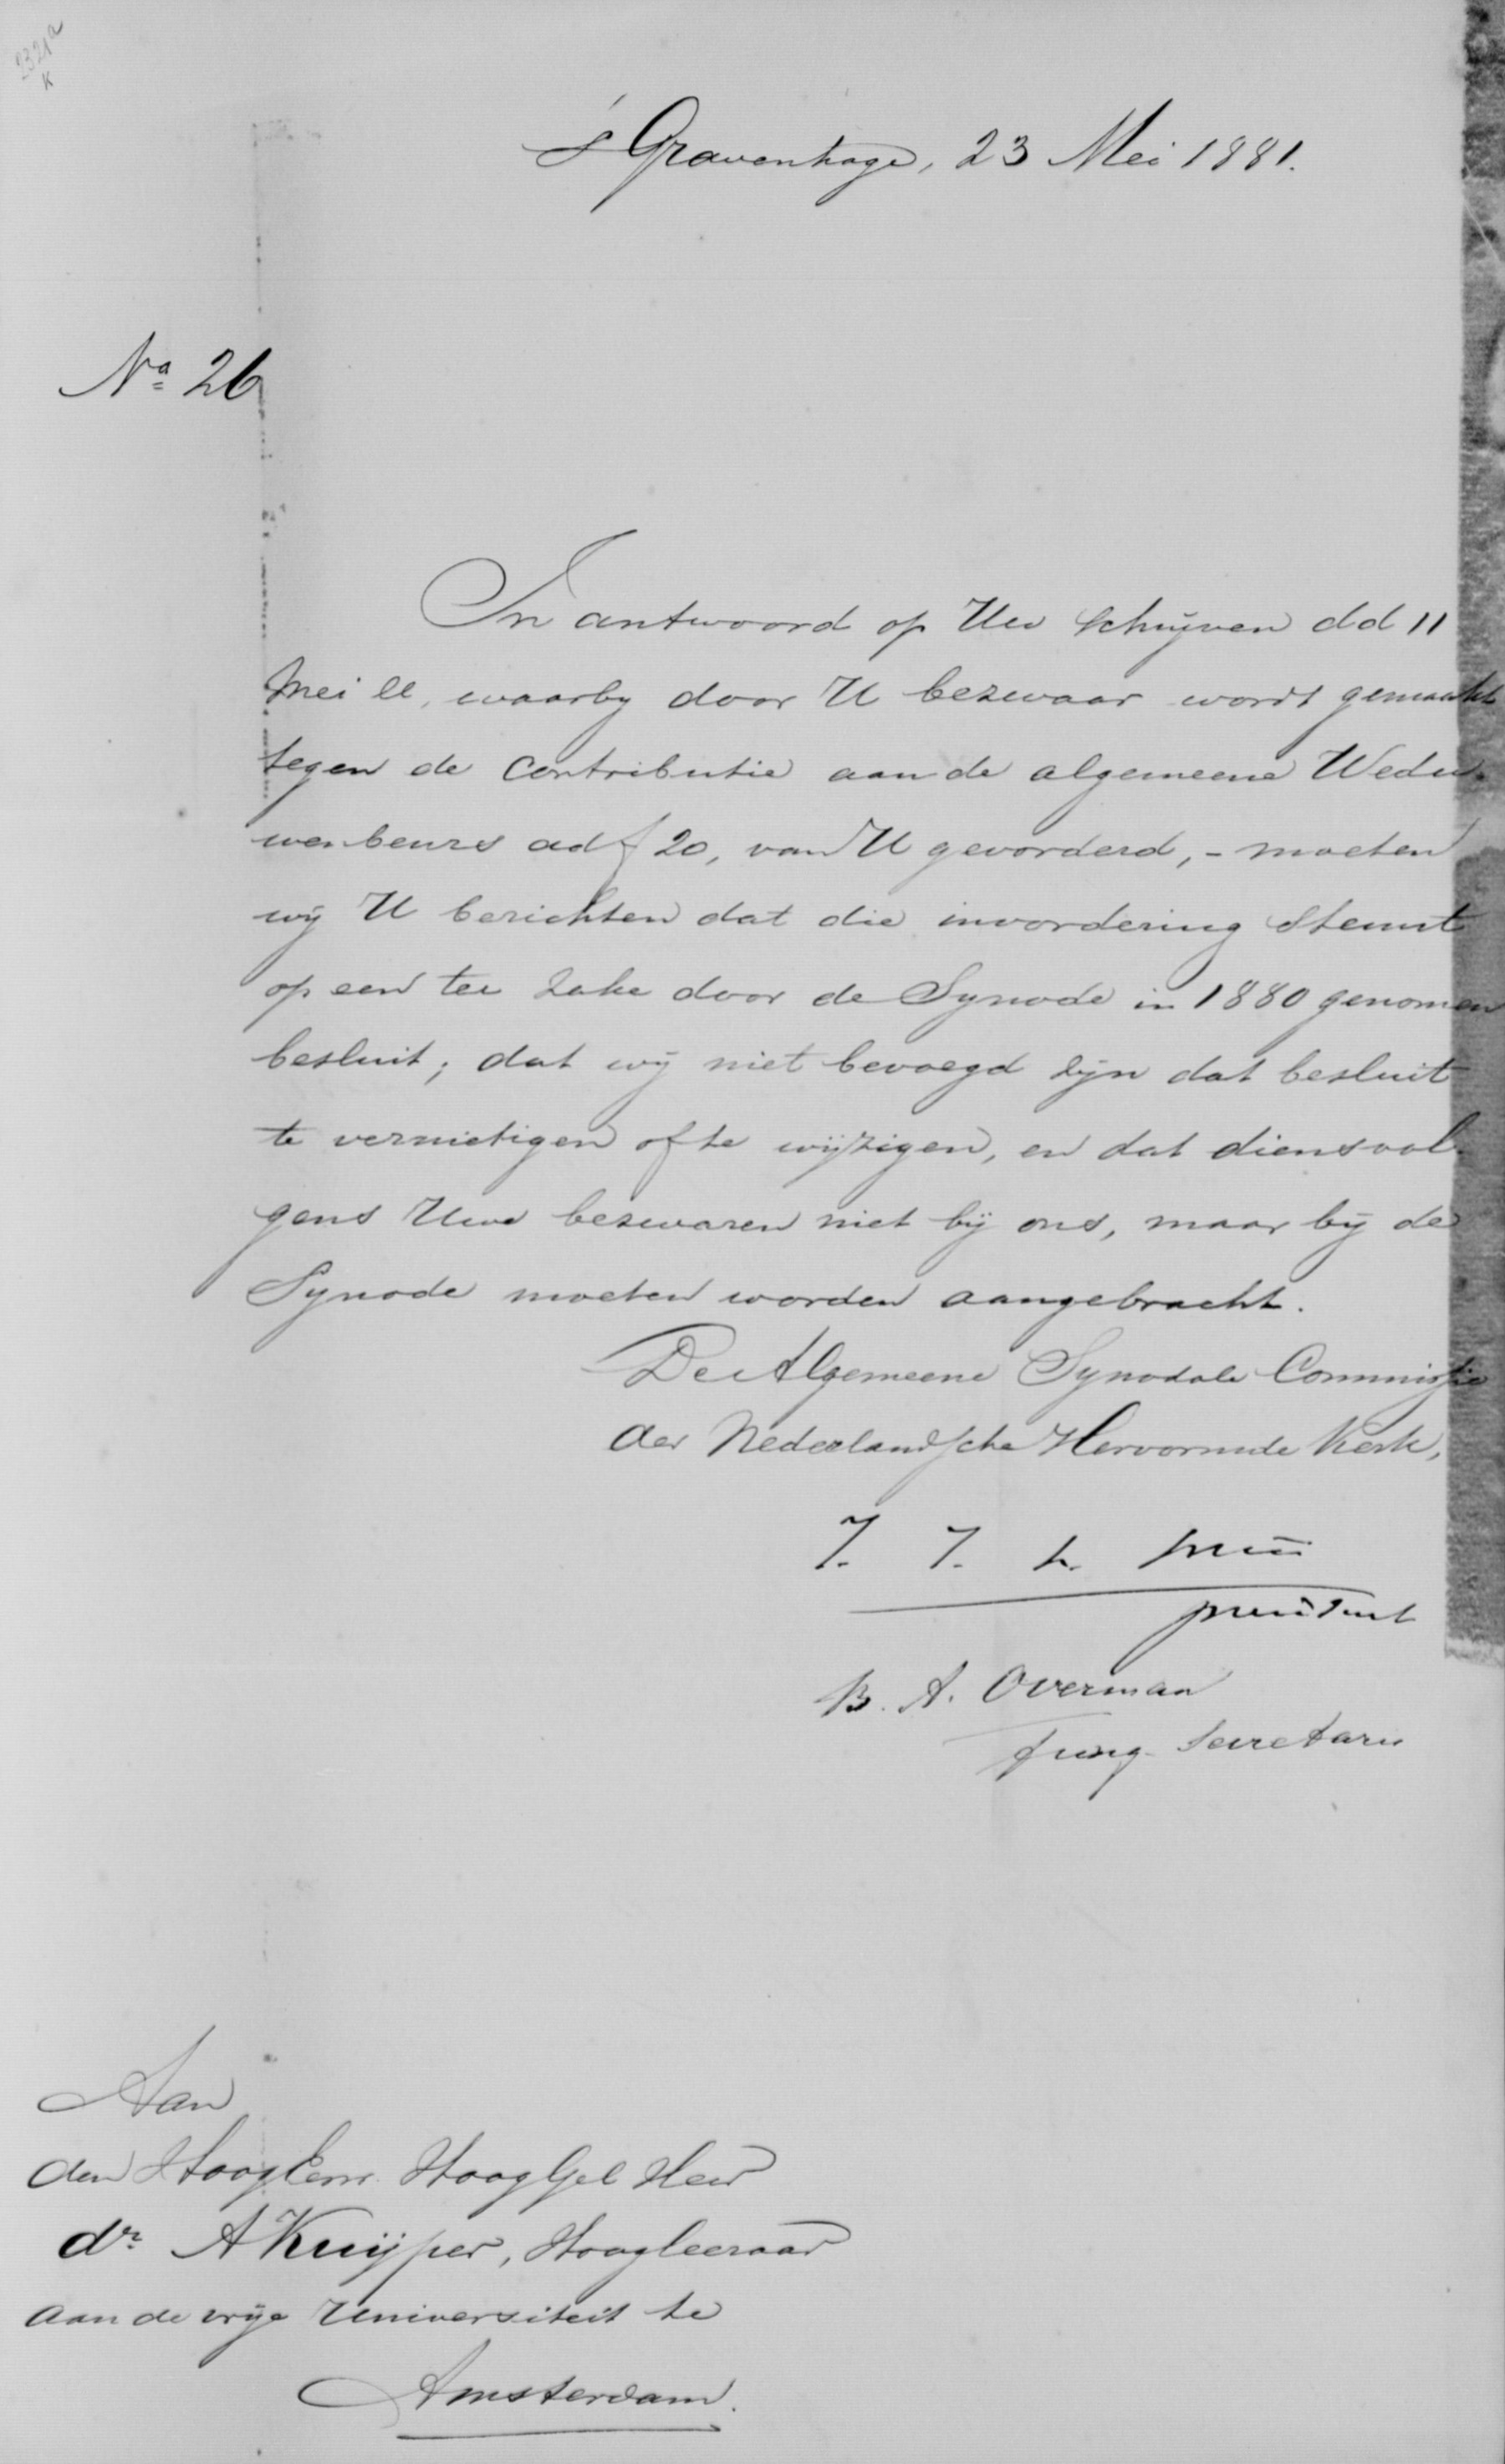 2321a
K
's Gravenhage, 23 Mei 1881.
No 26
In antwoord op Uw schrijven dd 11
Mei ll, waarby door U bezwaar wordt gemaakt
tegen de contributie aan de algemeene Wedu-
wenbeurs ad ƒ 20, van U gevorderd, - moeten
wij U berichten dat die invordering steunt
op een ter zake door de Synode in 1880 genomen
besluit; dat wij niet bevoegd zijn dat besluit
te vernietigen of te wijzigen, en dat diensvol-
gens Uwe bezwaren niet bij ons, maar bij de
Synode moeten worden aangebracht.
De Algemeene Synodale Commissie
der Nederlandsche Hervormde Kerk,
J. J.
president
B. A. Overman
fung. Secretaris
Aan
den HoogEerw. HoogGel Heer
dr. A Kuijper, Hoogleeraar
aan de vrije Universiteit te
Amsterdam.